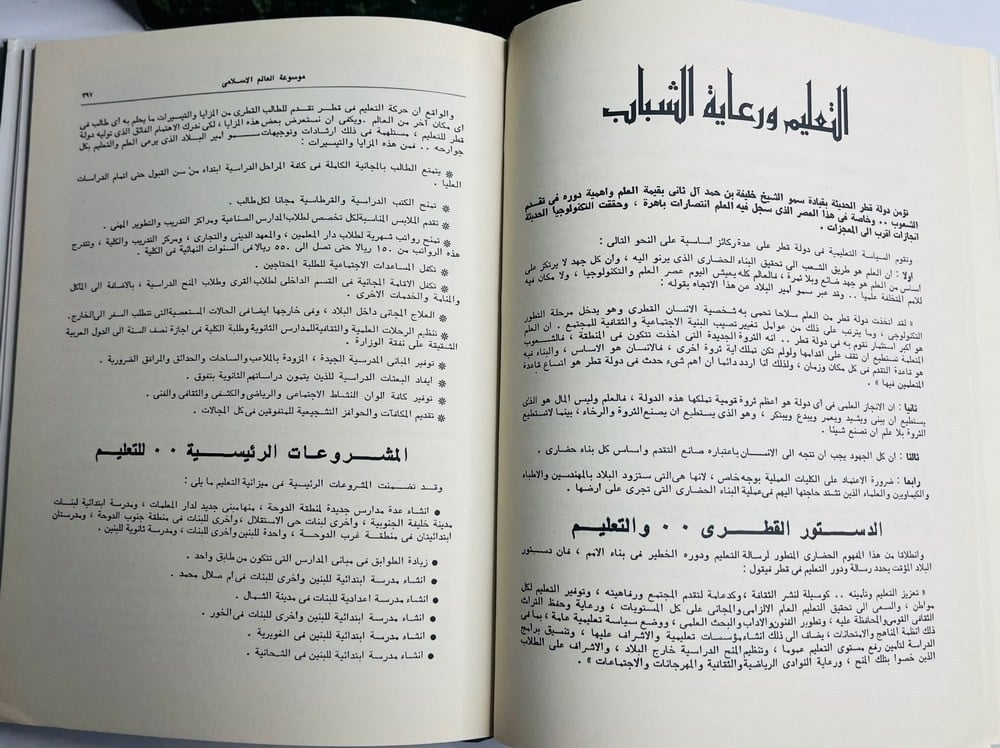 التعليم ورعاية الشباب
تؤمن دولة قطر الحديثة بقيادة سمو الشيخ خليفة بن حمد آل ثانى بقيمة العلم واهمية دوره فى تقدم
الشعوب .. وخاصة فى هذا العصر الذى سجل فيه العلم انتصارات باهرة ، وحققت التكنولوجيا الحديثة
انجازات اقرب الى المعجزات .
وتقوم السياسة التعليمية فى دولة قطر على عدة ركائز اساسية على النحو التالى :
اولا : ان العلم هو طريق الشعب الى تحقيق البناء الحضارى الذى يرنو اليه ، وان كل جهد لا يرتكز على
أساس من العلم هو جهد ضائع وبلا ثمرة ، فالعالم كله يعيش اليوم عصر العلم والتكنولوجيا ، ولا مكان فيه
للامم المتخلفة علميا .. وقد عبر سمو امير البلاد عن هذا الاتجاه بقوله :
« لقد اتخذت دولة قطر من العلم سلاحا تحمى به شخصية الانسان القطرى وهو يدخل مرحلة التطور
التكنولوجى ، وما يترتب على ذلك من عوامل تغير تصيب البنية الاجتماعية والثقافية للمجتمع . ان العلم
هو اكبر استثمار نقوم به فى دولة قطر .. انه الثروة الجديدة التى اخذت تتكون فى المنطقة ، فالشعوب
المتعلمة تستطيع ان تقف على اقدامها ولو لم تكن تملك اية ثروة اخرى ، فالانسان هو الاساس ، والبناء فيه
هو قاعدة التقدم فى كل مكان وزمان ، ولذلك أنا اردد دائما ان اهم شىء حدث فى دولة قطر هو اتساع قاعدة
المتعلمين فيها » .
ثانيا : ان الانجاز العلمى فى أى دولة هو أعظم ثروة قومية تملكها هذه الدولة ، فالعلم وليس المال هو الذى
يستطيع ان يبنى ويشيد ويعمر ويبدع ويبتكر ، وهو الذى يستطيع ان يصنع الثروة والرخاء ، بينما لاتستطيع
الثروة بلا علم ان تصنع شيئا .
ثالثا : ان كل الجهود يجب ان تتجه الى الانسان باعتباره صانع التقدم واساس كل بناء حضارى .
رابعا : ضرورة الاعتماد على الكليات العملية بوجه خاص ، لانها هى التى ستزود البلاد بالمهندسين والاطباء
والكيماويين والعلماء الذين تشتد حاجتها اليهم فى عملية البناء الحضارى التى تجرى على ارضها .
الدستور القطرى .. والتعليم
وانطلاقا من هذا المفهوم الحضارى المتطور لرسالة التعليم ودوره الخطير فى بناء الامم ، فان دستور
البلاد المؤقت يحدد رسالة ودور التعليم فى قطر فيقول :
« تعزيز التعليم وتأمينه .. كوسيلة لنشر الثقافة ، وكدعامة لتقدم المجتمع ورفاهيته ، وتوفير التعليم لكل
مواطن ، والسعى الى تحقيق التعليم العام الالزامى والمجانى على كل المستويات ، ورعاية وحفظ التراث
الثقافى القومى والمحافظة عليه ، وتطوير الفنون والآداب والبحث العلمى ، ووضع سياسة تعليمية عامة ، بما فى
ذلك انظمة المناهج والامتحانات ، يضاف الى ذلك انشاء مؤسسات تعليمية والاشراف عليها ، وتنسيق برامج
الدراسة لتأمين رفع مستوى التعليم عموما ، وتنظيم المنح الدراسية خارج البلاد ، والاشراف على الطلاب
الذين خصوا بتلك المنح ، ورعاية النوادى الرياضية والثقافية والمهرجانات والاجتماعات » .
موسوعة العالم الاسلامى
٣٩٧
والواقع ان حركة التعليم فى قطر تقدم للطالب القطرى من المزايا والتيسيرات ما يحلم به أى طالب فى
أى مكان آخر من العالم . ويكفى ان نستعرض بعض هذه المزايا ، لكى ندرك الاهتمام الفائق الذى توليه دولة
قطر للتعليم ، مستلهمة فى ذلك ارشادات وتوجيهات سمو امير البلاد الذى يرعى العلم والتعليم بكل
جوارحه .. فمن هذه المزايا والتيسيرات :
❋ يتمتع الطالب بالمجانية الكاملة فى كافة المراحل الدراسية ابتداء من سن القبول حتى اتمام الدراسات
العليا .
❋ تمنح الكتب الدراسية والقرطاسية مجانا لكل طالب .
❋ تقدم الملابس المناسبة لكل تخصص لطلاب المدارس الصناعية ومراكز التدريب والتطوير المهنى .
❋ تمنح رواتب شهرية لطلاب دار المعلمين ، والمعهد الدينى والتجارى ، ومركز التدريب والكلية ، وتتدرج
هذه الرواتب من ١٥٠ ريالا حتى تصل الى ٥٥٠ ريالا فى السنوات النهائية فى الكلية .
❋ تكفل المساعدات الاجتماعية للطلبة المحتاجين .
❋ تكفل الاقامة المجانية فى القسم الداخلى لطلاب القرى وطلاب المنح الدراسية ، بالاضافة الى المأكل
والمنامة والخدمات الاخرى .
❋ العلاج المجانى داخل البلاد ، وفى خارجها ايضا فى الحالات المستعصية التى تتطلب السفر الى الخارج.
❋ تنظيم الرحلات العلمية والثقافية للمدارس الثانوية وطلبة الكلية فى اجازة نصف السنة الى الدول العربية
الشقيقة على نفقة الوزارة .
❋ توفير المبانى المدرسية الجيدة ، المزودة بالملاعب والساحات والحدائق والمرافق الضرورية .
❋ ايفاد البعثات الدراسية للذين يتمون دراساتهم الثانوية بتفوق .
❋ توفير كافة الوان النشاط الاجتماعى والرياضى والكشفى والثقافى والفنى .
❋ تقديم المكافآت والحوافز التشجيعية للمتفوقين فى كل المجالات .
المشروعات الرئيسية .. للتعليم
وقد تضمنت المشروعات الرئيسية فى ميزانية التعليم ما يلى :
● انشاء عدة مدارس جديدة لمنطقة الدوحة ، منها مبنى جديد لدار المعلمات ، ومدرسة ابتدائية لبنات
مدينة خليفة الجنوبية ، واخرى لبنات حى الاستقلال ، واخرى للبنات فى منطقة جنوب الدوحة ، ومدرستان
ابتدائيتان فى منطقة غرب الدوحة ، واحدة للبنين واخرى للبنات ، ومدرسة ثانوية للبنين .
● زيادة الطوابق فى مبانى المدارس التى تتكون من طابق واحد .
● انشاء مدرسة ابتدائية للبنين وأخرى للبنات فى أم صلال محمد .
● انشاء مدرسة اعدادية للبنات فى مدينة الشمال .
● انشاء مدرسة ابتدائية للبنين وأخرى للبنات فى الخور .
● انشاء مدرسة ابتدائية للبنين فى الغويرية .
● انشاء مدرسة ابتدائية للبنين فى الشحانية .